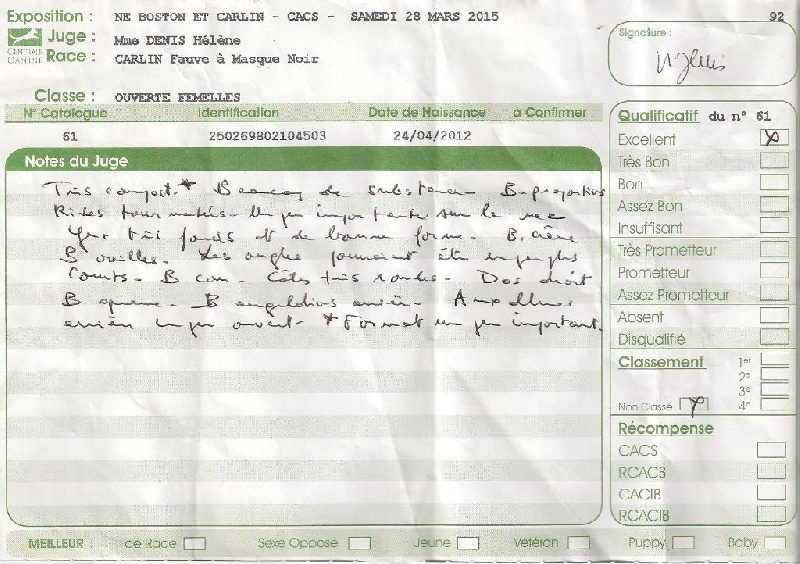 Exposition : NE BOSTON ET CARLIN - CACS - SAMEDI 28 MARS 2015 92
Juge : Mme DENIS Hélène
CENTRALE CANINE
Race : CARLIN Fauve à Masque Noir
Signature :
Classe : OUVERTE FEMELLES
N° Catalogue Identification Date de Naissance à Confirmer
61 250269802104503 24/04/2012
Notes du Juge
Très compact.* Beaucoup de substance B. proportions
Rides bien marquées. Un peu importante sur le nez
Yeux très foncés et de bonne forme. B. crâne
B oreilles. Les ongles pourraient être un peu plus
courts. B cou. Côtes très rondes. Dos droit
B queue. B angulations arrière. Aux allures
arrière un peu ouvert. *Format un peu important.
Qualificatif du n° 61
Excellent X
Très Bon
Bon
Assez Bon
Insuffisant
Très Prometteur
Prometteur
Assez Prometteur
Absent
Disqualifié
Classement 1er
2e
3e
Non Classé X 4e
Récompense
CACS
RCACS
CACIB
RCACIB
MEILLEUR : de Race Sexe Opposé Jeune Vétéran Puppy Baby